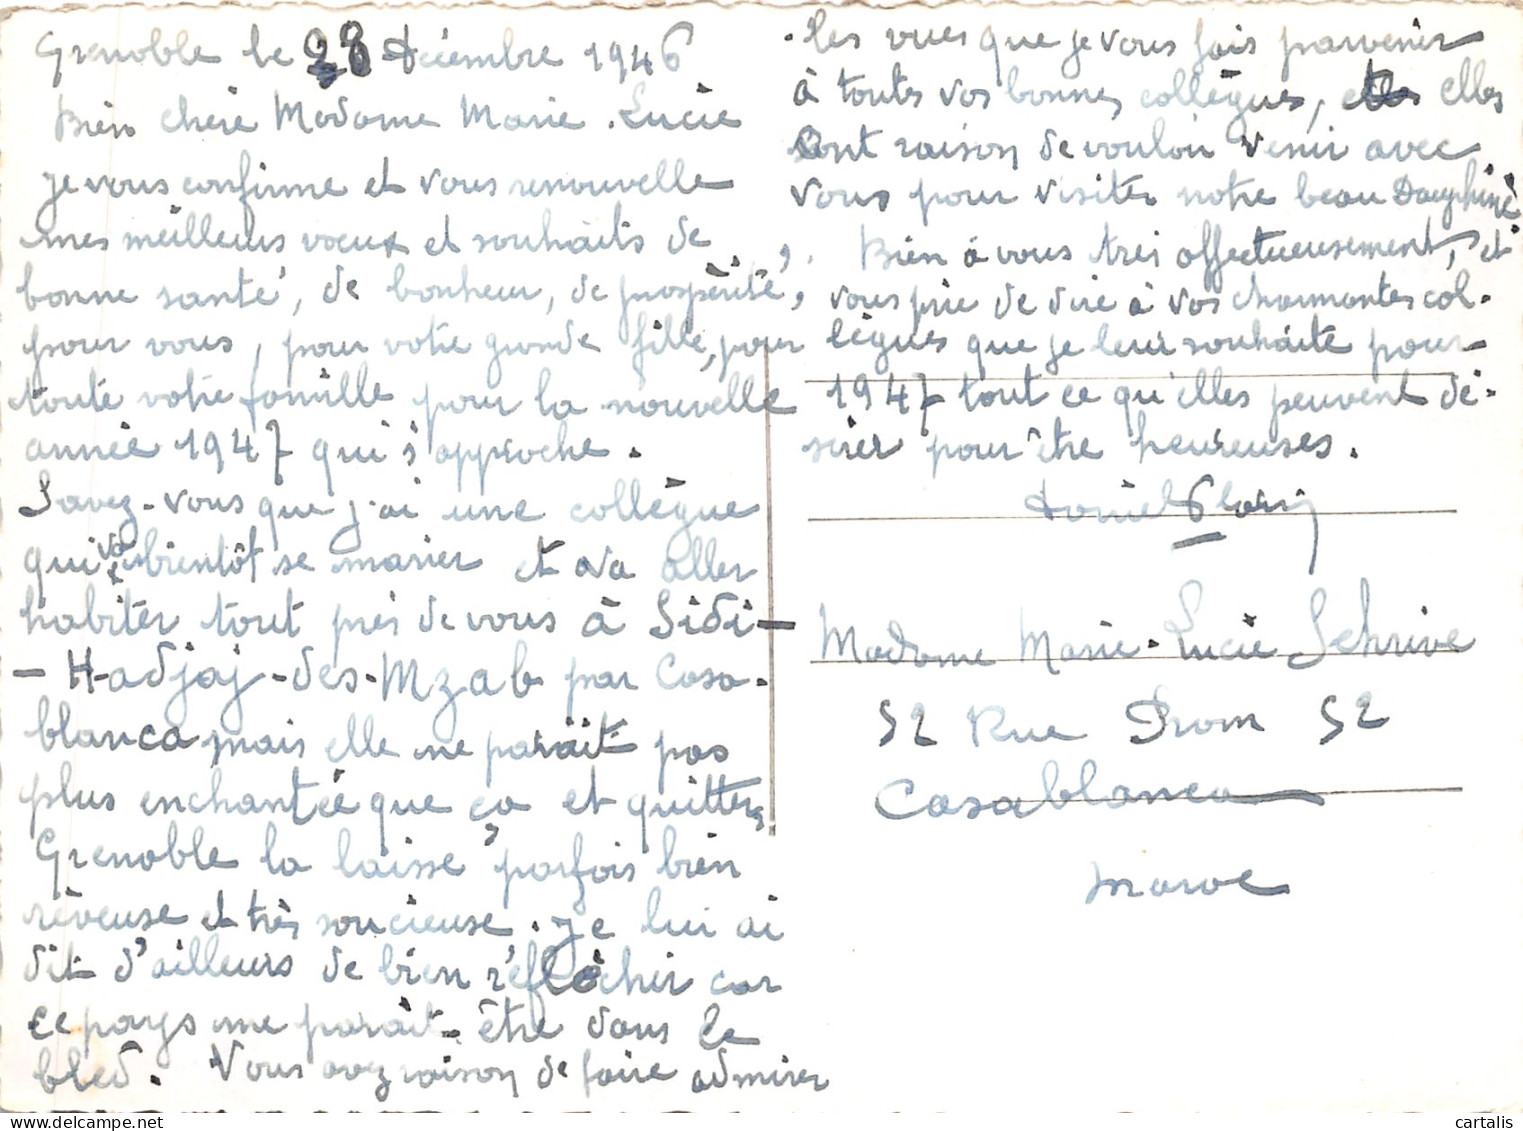 Grenoble le 28 Décembre 1946
Bien chère Madame Marie-Lucie
je vous confirme et vous renouvelle
mes meilleurs voeux et souhaits de
bonne santé, de bonheur, de prospérité,
pour vous, pour votre grande fille, pour
toute votre famille pour la nouvelle
année 1947 qui s'approche.
Savez-vous que j'ai une collègue
qui va bientôt se marier et va aller
habiter tout près de vous à Sidi-
-Hadjaj-des-Mzab par Casa-
blanca mais elle ne paraît pas
plus enchantée que ça et quitter
Grenoble la laisse parfois bien
rêveuse et très soucieuse. Je lui ai
dit d'ailleurs de bien réfléchir car
ce pays me paraît-être dans le
bled. Vous avez raison de faire admirer
les vues que je vous fais parvenir
à toutes vos bonnes collègues, elles
ont raison de vouloir venir avec
vous pour visiter notre beau Dauphiné
Bien à vous très affectueusement, et
vous prie de dire à vos charmantes col-
lègues que je leur souhaite pour
1947 tout ce qu'elles peuvent dé-
sirer pour être heureuses.
Daniel
Madame Marie-Lucie Schrive
52 Rue Prom 52
Casablanca
Maroc
cartalis